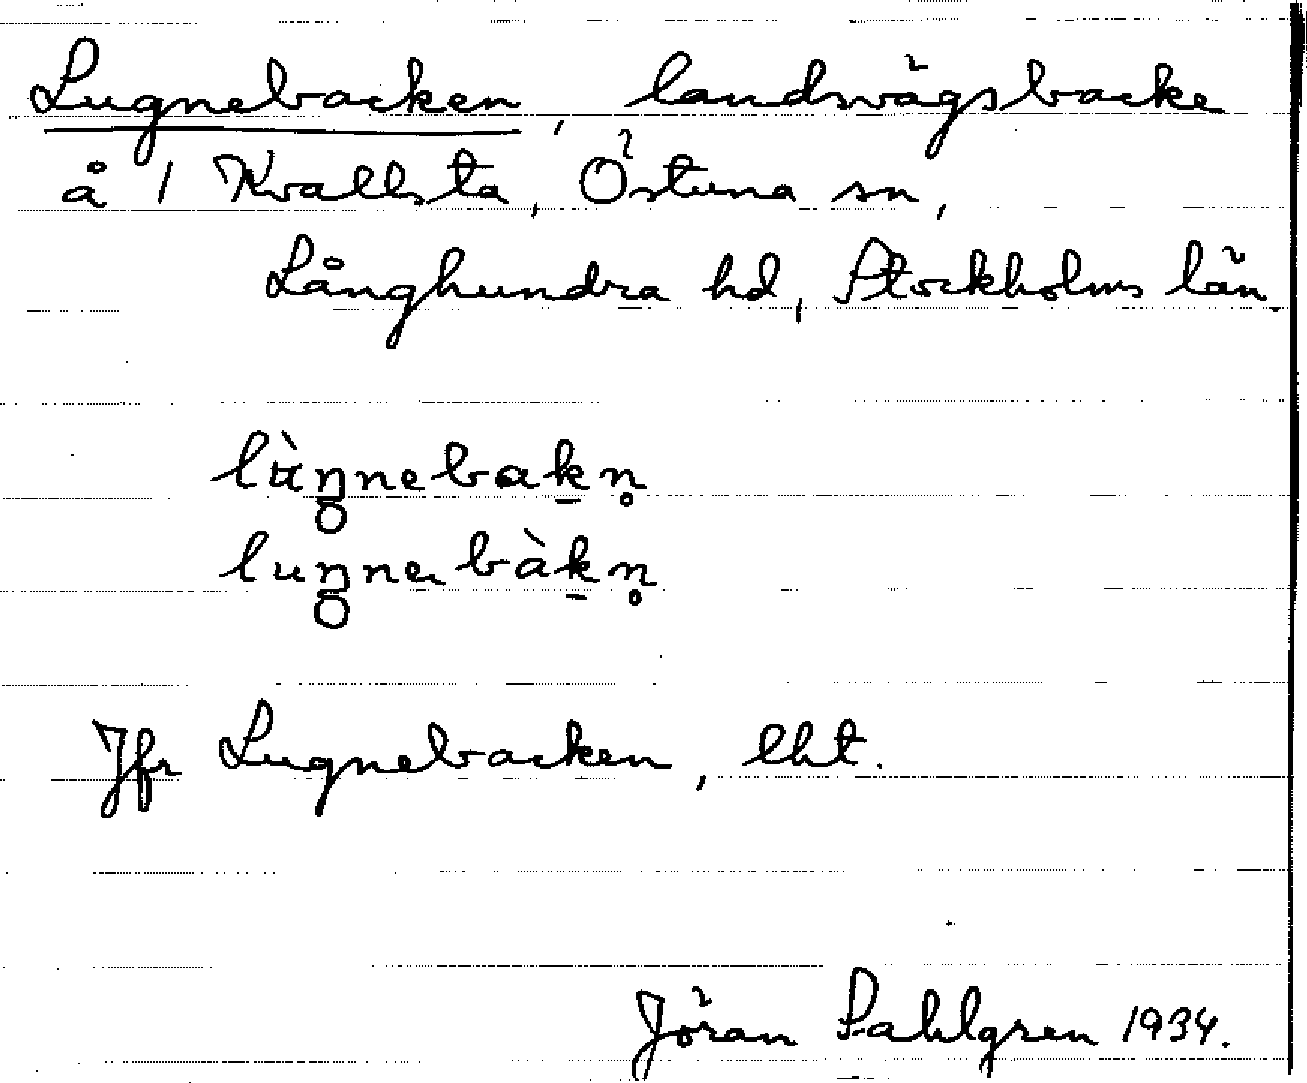 Lugnebacken, landsvägsbacke
å 1 Kvallsta, Östuna sn,
Långhundra hd, Stockholms län.
lùŋnebakn̥
luŋnebàkn̥
Jfr Lugnebacken, lht.
Jöran Sahlgren 1934.